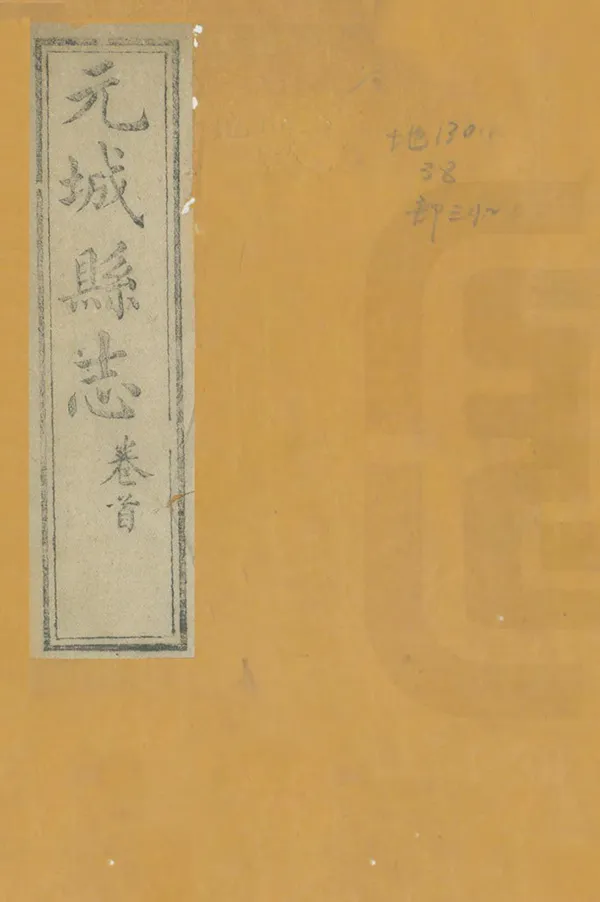 元城縣志
卷首
地130
38